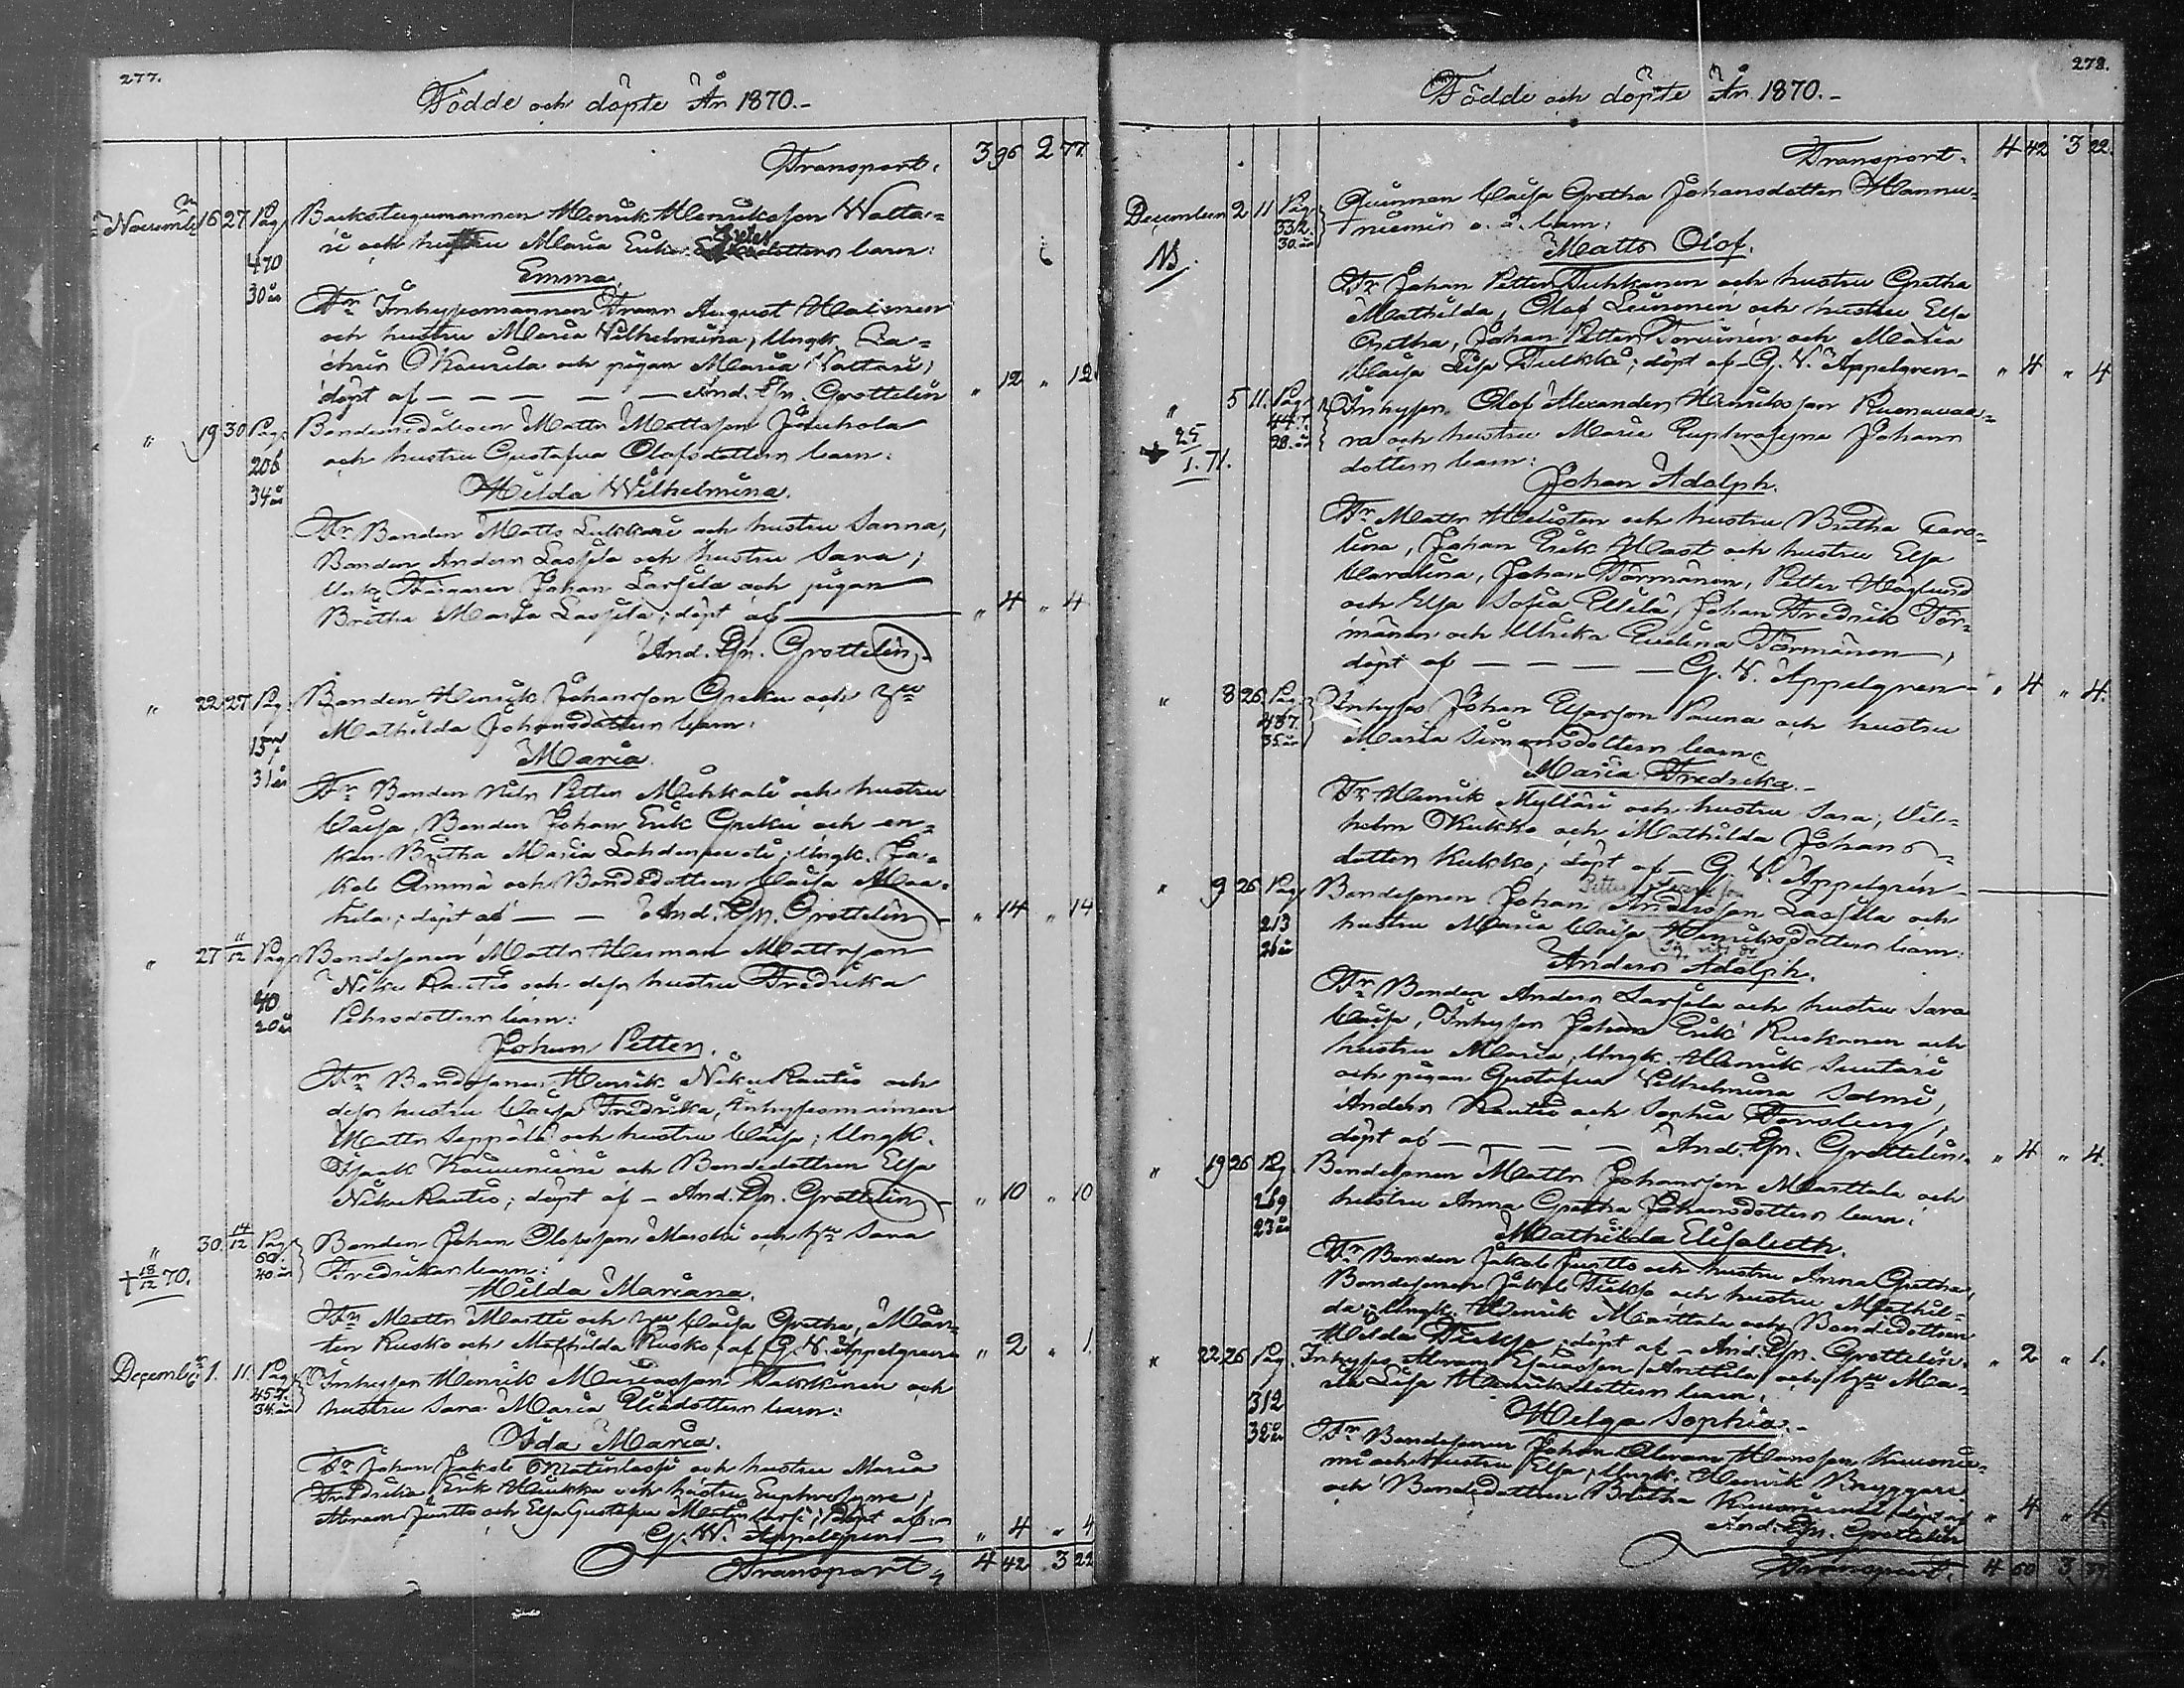 277.
Födde och döpte År 1870.-
Transport. 3 96 2 77.
November 16 27 Pag. 470 30 år Backstugumannen Henrik Henriksson Watta=
ri och hustru Maria Erika dottern barn:
Emma.
Fr Inhysesmannen Frans August Halmen
och hustru Maria Vilhelmina, Ungk. Za=
chris Kaurila och pigan Maria Wattari;
döpt af — — — — — And. Gn. Grottelin " 12 " 12
" 19 30 Pag. 206 34 år Bondemågen Matts Mattsson Jouhola
och hustru Gustafva Olofsdotters barn:
Hilda Wilhelmina.
Fr Bonden Matts Lukkari och hustru Sanna,
Bonden Anders Lassila och hustru Sara;
Färgaren Johan Lassila och pigan
Britha Maria Lassila; döpt af — " 4 " 4
And. Gn. Grottelin.
" 22 27 Pag. 31 år Bonden Henrik Johansson Greku och hu
Mathilda Johansdotters barn:
Maria.
Fr Bonden Nils Petter Mikkali och hustru
Caisa, Bonden Johan Erik Greku och en=
kan Britha Maria Lahdenperä; Ungk. Ja=
kob Ämmä och Bondedottren Caisa Maa=
hila; döpt af — — And. Gn. Grottelin " 14 " 14
" 27 11/12 Pag. 40 20 år Bondesonen Matts Herman Mattsson
Niku Rautio och dess hustru Fredrika
Pehrsdotters barn:
Johan Petter.
Fr Bondesonen Henrik Niku Rautio och
dess hustru Caisa Fredrika, Inhysesmannen
Matts Seppälä och hustru Caisa; Ungk.
Isaak Kauniemi och Bondedottren Elsa
Niku Rautio; döpt af - And. Gn. Grottelin " 10 " 10
" 30. 14/12 Pag. 60. 40 år Bonden Johan Olofsson Marski och hu Sara
† 18/12 70. Fredrikas barn:
Hilda Mariana.
Fr Matts Martti och hu Caisa Gretha, Mår=
ten Rusko och Mathilda Rusko; af G. W. Appelgren " 2 " 1.
December 1. 11. Pag. 457. 34 år Inhyses Henrik Mariasson Takkinen och
hustru Sara Maria Eliedotters barn:
Ida Maria.
Fr Johan Jakob Matinlassi och hustru Maria
Fredrika, Erik Hiukka och hustru Euphrosyne,
Abram Juntto och Elsa Gustafva Matinlassi; döpt af
G. W. Appelgren — " 4 " 4
Transport 4 42 3 22
278.
Födde och döpte År 1870.-
Transport. 4 42 3 22.
December 2 11 Pag. 332. 30. år Qvinnan Caisa Gretha Johansdotter Hannu=
niemis o. ä. barn:
NB. Matts Olof.
Fr Johan Petter Tuhkanen och hustru Gretha
Mathilda, Olof Leinonen och hustru Elsa
Gretha, Johan Petter Torvinen och Maria
Caisa Lisa Pulkka; döpt af G. W. Appelgren — " 4 " 4
" 5 11. Pag. 447. 28. år Inhyses Olof Alexander Henriksson Ruonavaa=
† 25/1. 71. ra och hustru Maria Euphrosyna Johans
dotters barn:
Johan Adolph.
Fr Matts Helisten och hustru Britha Caro=
lina, Johan Erik Mast och hustru Elsa
Carolina, Johan Törmänen, Petter Höglund
och Elsa Sofia Ellilä, Johan Fredrik Tör=
mänen och Ulrika Evelina Törmänen,
döpt af — — — — G. W. Appelgren — " 4 " 4.
" 8 26. Pag. 487. 35 år Inhyses Johan Esasson Pauna och hustru
Maria Simonsdotters barn:
Maria Fredrika.-
Fr Henrik Mylläri och hustru Sara, Vil=
helm Kukko och Mathilda Johans=
dotter Kukko; döpt af - G. W. Appelgren —
" 9 26 Pag. 213 26 år Bondesonen Johan Andersson Lassila och
hustru Maria Caisa Henriksdotters barn:
Anders Adolph.
Fr Bonden Anders Lassila och hustru Sara
Caisa, Inhyses Johan Erik Ruskanen och
hustru Maria, Ungk. Henrik Suutari
och pigan Gustafva Vilhelmina Salmi,
Anders Rautio och Sophia Forsberg;
döpt af — — — — And. Gn. Grottelin. " 4 " 4.
" 19 26 Pag. 269 23 år Bondesonen Matts Johansson Marttala och
hustru Anna Gretha Johansdotters barn:
Mathilda Elisabeth.
Fr Bonden Jakob Juntto och hustru Anna Gretha,
Bondesonen Jakob Fiskso och hustru Mathil=
da; Ungk. Henrik Marttala och Bondedottren
Hilda Fiskso; döpt af - And. Gn. Grottelin. " 2 " 1.
" 22 26 Pag. 312 32 år Inhyses Abram Esaiasson Anttila och hu Ma=
ria Lisa Henriksdotters barn:
Helga Sophia.-
Fr Bondesonen Johan Abram Hansson Kuonie=
mi och hustru Elsa, Ungk. Henrik Bryggari
och Bondedottren Britha Kuoniemi; döpt af " 4 " 4.
And. Gn. Grottelin
Transport. 4 60 3